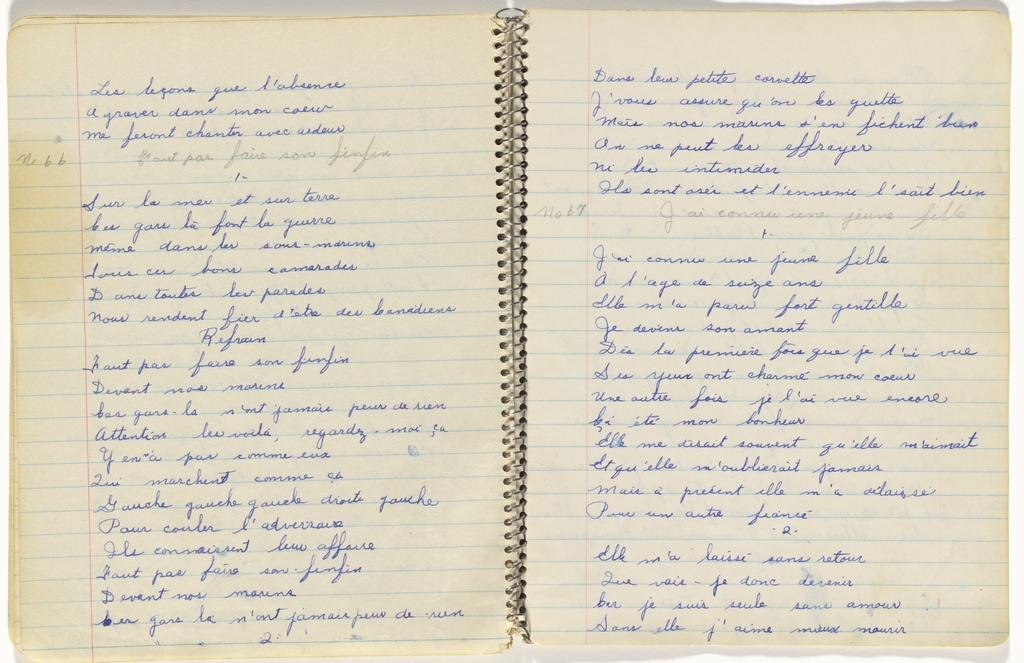 Les leçons que l'absence
A graver dans mon coeur
Me feront chanter avec ardeur
No 66 Faut pas faire son finfin
1-
Sur la mer et sur terre
Ces gars là font la guerre
Même dans les sous-marins
Tous ces bons camarades
Dans toutes leur parades
Nous rendent fier d'etre des Canadiens
Refrain
Faut pas faire son finfin
Devant nos marins
Ces gars-la n'ont jamais peur de rien
Attention les voilà, regardez-moi ça
Y en-a pas comme eux
Qui marchent comme ça
Gauche gauche gauche droite gauche
Pour couler l'adversaire
Ils connaissent leur affaire
Faut pas faire son-finfin
Devant nos marins
Ces gars la n'ont jamais peur de-rien
2-
Dans leur petite corvette
J'vous assure qu'on les guette
Mais nos marins s'en fichent bien
On ne peut les effrayer
Ni les intimider
Ils sont osés et l'ennemi l'sait bien
No 67 J'ai connu une jeune fille
1.
J'ai connu une jeune fille
A l'age de seize ans
Elle m'a paru fort gentille
Je devins son amant
Dès la première fois que je l'ai vue
Ses yeux ont charmé mon coeur
Une autre fois je l'ai vue encore
Ça été mon bonheur
Elle me disait souvent qu'elle m'aimait
Et qu'elle m'oublierait jamais
Mais à présent elle m'a délaissé
Pour un autre fiancé
2.
Elle m'a laissé sans retour
Que vais-je donc devenir
Car je suis seule sans amour
Sans elle j'aime mieux mourir